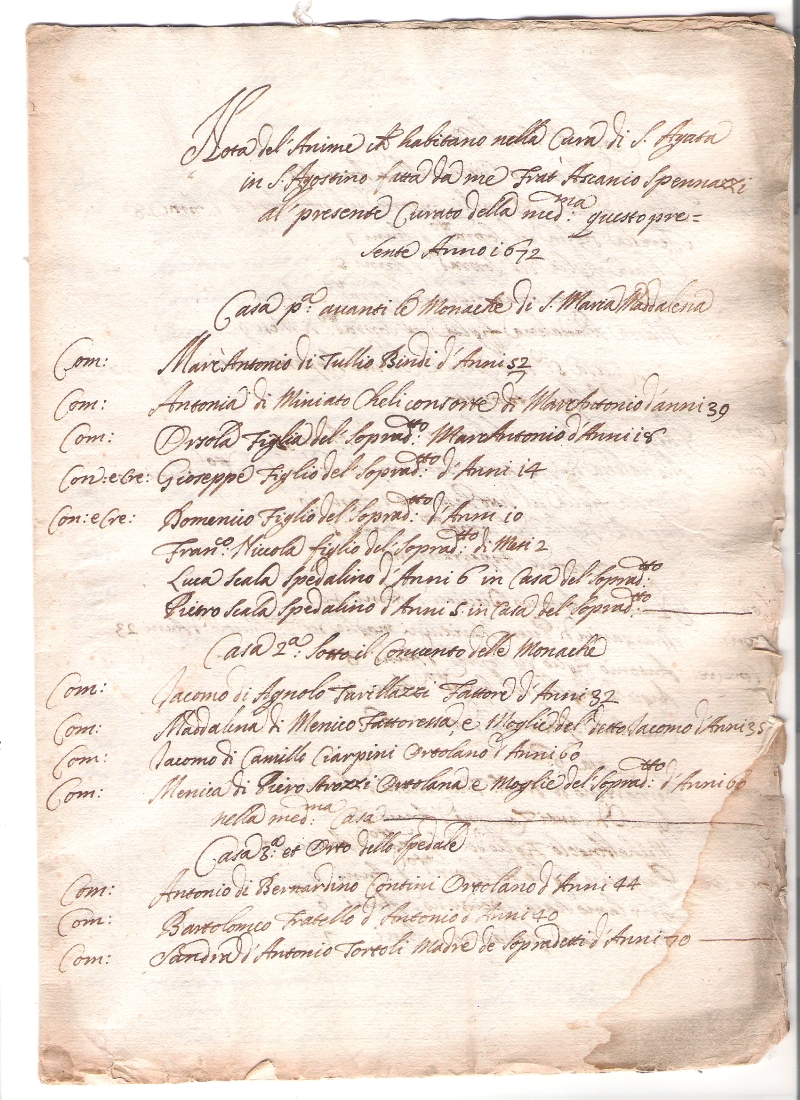 Nota del' Anime ch habitano nella Cura di S. Agata
in S. Agostino fatta da me Frat' Ascanio Spennazzi
al' presente Curato della med:ma questo pre=
sente Anno 1672
Casa pa avanti le Monache di S. Maria Maddalena
Com: Marc'Antonio di Tullio Bindi d'Anni 52
Com: Antonia di Miniato Cheli consorte di Marc'Antonio d'anni 39
Com: Orsola Figlia del' Soprad:tto Marc'Antonio d'Anni 18
Con: e Cre: Gioseppe Figlio del' Soprad:tto d'Anni 14
Con: e Cre: Domenico Figlio del' Soprad:tto d'Anni 10
Fran:co Niccola figlio del' Soprad:tto di Mesi 2
Luca Scala Spedalino d'Anni 6 in Casa del' Soprad:tto
Pietro Scala Spedalino d'Anni 5. in Casa del' Soprad:tto
Casa 2a: Sotto il Convento delle Monache
Com: Jacomo di Agnolo Turillazzi Fattore d'Anni 32
Com: Maddalina di Menico Fattoressa, e Moglie del' detto Jacomo d'Anni 35
Com: Jacomo di Camillo Ciarpini Ortolano d'Anni 60
Com: Menica di Piero Strozzi Ortolana e Moglie del' Soprad:tto d'Anni 60
nella med:ma Casa
Casa 3a: et Orto dello Spedale
Com: Antonio di Bernardino Contini Ortolano d'Anni 44
Com: Bartolomeo Fratello d'Antonio d'Anni 40
Com: Sandra d'Antonio Tortoli Madre de Sopradetti d'Anni 70